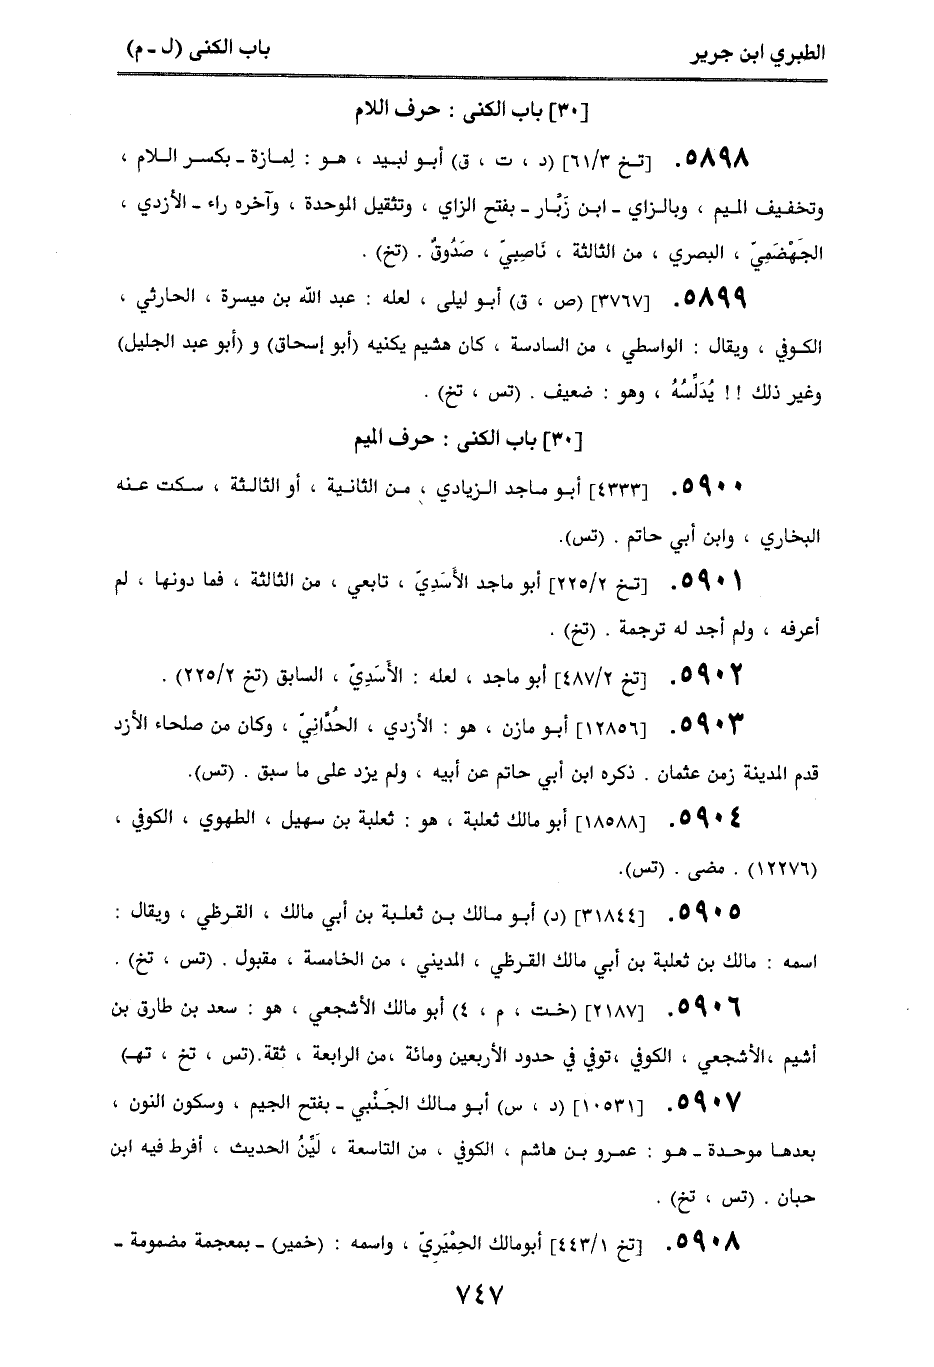 الطبري ابن جرير
باب الكنى (ل - م)
[٣٠] باب الكنى : حرف اللام
٥٨٩٨. [تخ ٦١/٣] (د ، ت ، ق) أبو لبيد ، هو : لِمازة - بكسر اللام ،
وتخفيف الميم ، وبالزاي - ابن زَبَّار - بفتح الزاي ، وتثقيل الموحدة ، وآخره راء - الأزدي ،
الجَهْضَمِيّ ، البصري ، من الثالثة ، نَاصِبيّ ، صَدُوقٌ . (تخ) .
٥٨٩٩. [٣٧٦٧] (ص ، ق) أبو ليلى ، لعله : عبد الله بن ميسرة ، الحارثي ،
الكوفي ، ويقال : الواسطي ، من السادسة ، كان هشيم يكنيه (أبو إسحاق) و (أبو عبد الجليل)
وغير ذلك !! يُدَلِّسُهُ ، وهو : ضعيف . (تس ، تخ) .
[٣٠] باب الكنى : حرف الميم
٥٩٠٠. [٤٣٣٣] أبو ماجد الزيادي ، من الثانية ، أو الثالثة ، سكت عنه
البخاري ، وابن أبي حاتم . (تس).
٥٩٠١. [تخ ٢٢٥/٢] أبو ماجد الأَسَدِيّ ، تابعي ، من الثالثة ، فما دونها ، لم
أعرفه ، ولم أجد له ترجمة . (تخ) .
٥٩٠٢. [تخ ٤٨٧/٢] أبو ماجد ، لعله : الأَسَدِيّ ، السابق (تخ ٢٢٥/٢) .
٥٩٠٣. [١٢٨٥٦] أبو مازن ، هو : الأزدي ، الحُدَّانِيّ ، وكان من صلحاء الأزد
قدم المدينة زمن عثمان . ذكره ابن أبي حاتم عن أبيه ، ولم يزد على ما سبق . (تس).
٥٩٠٤. [١٨٥٨٨] أبو مالك ثعلبة ، هو : ثعلبة بن سهيل ، الطهوي ، الكوفي ،
(١٢٢٧٦) . مضى . (تس).
٥٩٠٥. [٣١٨٤٤] (د) أبو مالك بن ثعلبة بن أبي مالك ، القرظي ، ويقال :
اسمه : مالك بن ثعلبة بن أبي مالك القرظي ، المديني ، من الخامسة ، مقبول . (تس ، تخ) .
٥٩٠٦. [٢١٨٧] (خت ، م ، ٤) أبو مالك الأشجعي ، هو : سعد بن طارق بن
أشيم ،الأشجعي ، الكوفي ،توفي في حدود الأربعين ومائة ،من الرابعة ، ثقة.(تس ، تخ ، تهـ)
٥٩٠٧. [١٠٥٣١] (د ، س) أبو مالك الجَنْبي - بفتح الجيم ، وسكون النون ،
بعدها موحدة - هو : عمرو بن هاشم ، الكوفي ، من التاسعة ، لَيِّنُ الحديث ، أفرط فيه ابن
حبان . (تس ، تخ) .
٥٩٠٨. [تخ ٤٤٣/١] أبومالك الحِمْيَرِيّ ، واسمه : (خمير) - بمعجمة مضمومة -
٧٤٧